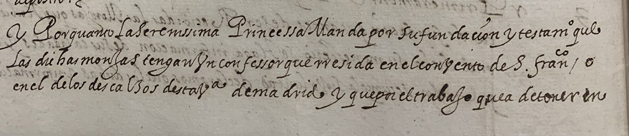 y Porquanto la serenissima Princessa Manda por su fundacion y testamᵒ que
las dichas monjas tengan vn confessor que rresida en el conuento de S. franᶜᵒ / o
en el de los descalços desta vᵃ de madrid y que por el trabajo que a de tener en